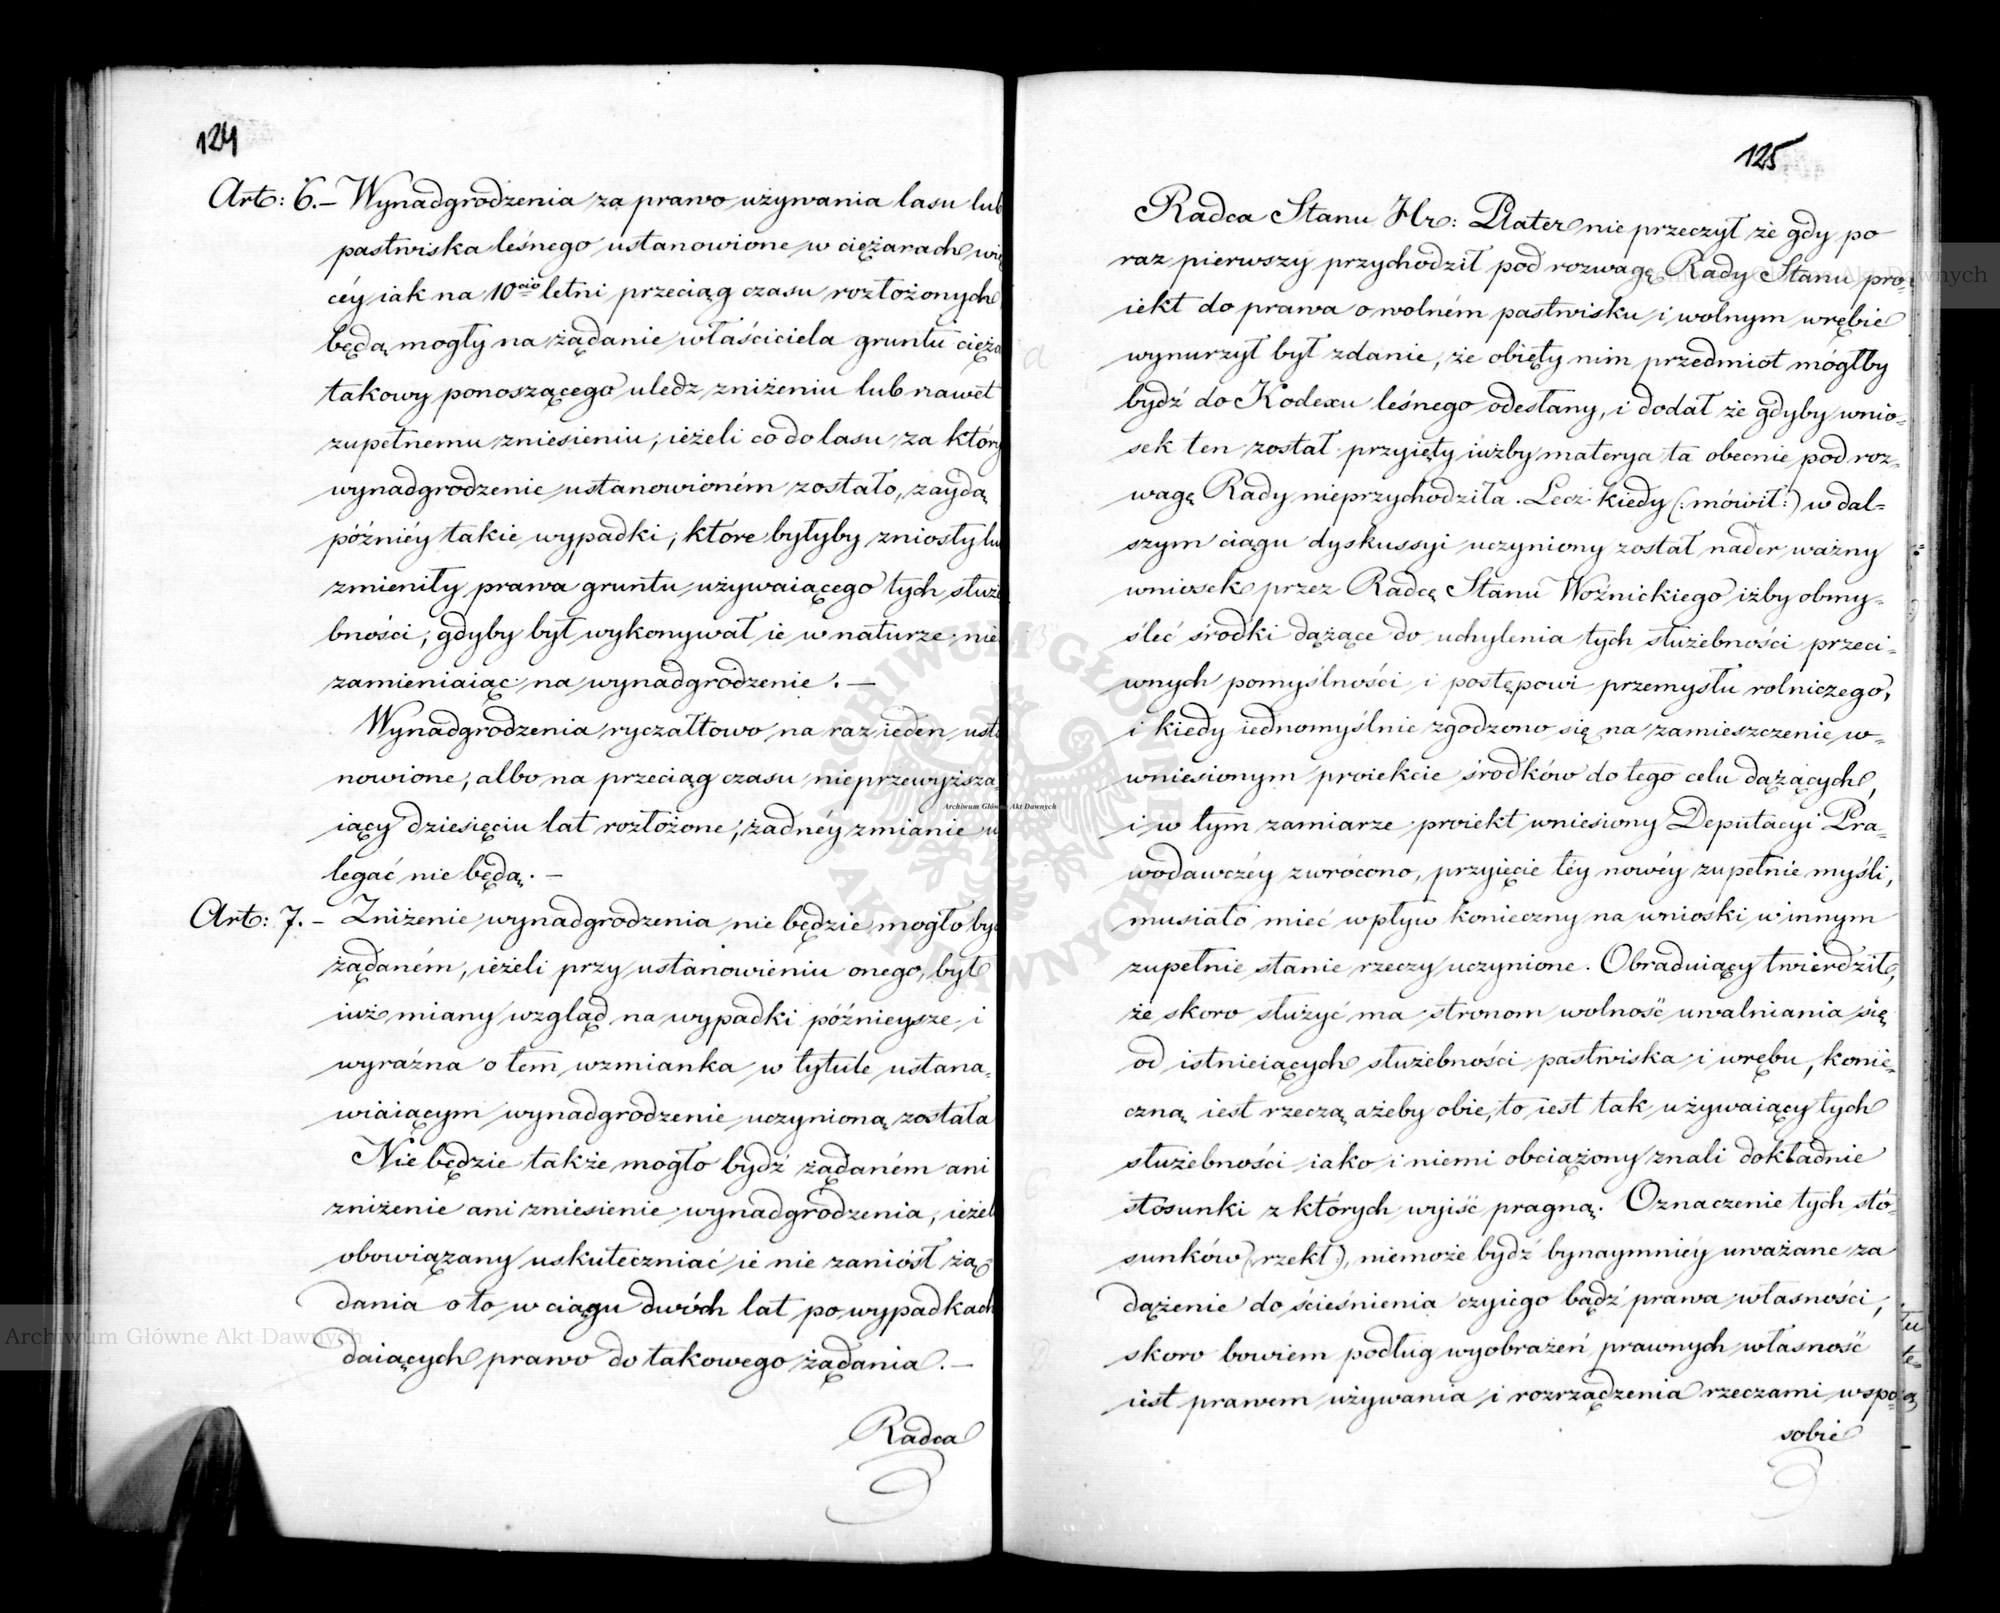 124
Art: 6. — Wynadgrodzenia za prawo używania lasu lub
pastwiska leśnego ustanowione w ciężarach wię
céy iak na 10cio letni przeciąg czasu rozłożonych
będą mogły na żądanie właściciela gruntu cięża
takowy ponoszącego uledz zniżeniu lub nawet
zupełnemu zniesieniu, ieżeli co do lasu za który
wynadgrodzenie ustanowioném zostało, zaydą
późniéy takie wypadki, które byłyby zniosły lu
zmieniły prawa gruntu używaiącego tych służe
bności, gdyby był wykonywał ie w naturze nie
zamieniaiąc na wynadgrodzenie. —
Wynadgrodzenia ryczałtowo na raz ieden usta
nowione, albo na przeciąg czasu nieprzewyższa
iący dziesięciu lat rozłożone, żadnéy zmianie u
legać nie będą. —
Art: 7. — Zniżenie wynadgrodzenia nie będzie mogło by
żądaném, ieżeli przy ustanowieniu onego, był
iuż miany wzgląd na wypadki późnieysze i
wyraźna o tem wzmianka w tytule ustana-
wiaiącym wynadgrodzenie uczynioną została
Nie będzie także mogło bydź żądaném ani
zniżenie ani zniesienie wynadgrodzenia, ieżel
obowiązany uskuteczniać ie nie zaniósł żą
dania o to w ciągu dwóch lat po wypadkach
daiących prawo do takowego żądania. —
Radca
125
Radca Stanu Hr: Plater nie przeczył że gdy po
raz pierwszy przychodził pod rozwagę Rady Stanu pro-
iekt do prawa o wolném pastwisku i wolnym wrębie
wynurzył był zdanie, że obięty nim przedmiot mógłby
bydź do Kodexu leśnego odesłany, i dodał że gdyby wnio-
sek ten został przyięty iużby materya ta obecnie pod roz-
wagę Rady nieprzychodziła. Lecz kiedy (: mówił :) w dal-
szym ciągu dyskussyi uczyniony został nader ważny
wniosek przez Radcę Stanu Woźnickiego iżby obmy-
śleć środki dążące do uchylenia tych służebności przeci-
wnych pomyślności i postępowi przemysłu rolniczego,
i kiedy iednomyślnie zgodzono się na zamieszczenie w-
wniesionym proiekcie środków do tego celu dążących,
i w tym zamiarze proiekt wniesiony Deputacyi Pra-
wodawczéy zwrócono, przyięcie téy nowéy zupełnie myśli,
musiało mieć wpływ konieczny na wnioski w innym
zupełnie stanie rzeczy uczynione. Obraduiący twierdził,
że skoro służyć ma stronom wolność uwalniania się
od istnieiących służebności pastwiska i wrębu, konie-
czną iest rzeczą ażeby obie, to iest tak używaiący tych
służebności iako i niemi obciążony znali dokładnie
stosunki z których wyiść pragną. Oznaczenie tych sto-
sunków (: rzekł :), niemoże bydź bynaymniéy uważane za
dążenie do ścieśnienia czyiego bądź prawa własności,
skoro bowiem podług wyobrażeń prawnych własność
iest prawem używania i rozrządzenia rzeczami w spo-
sobie
Archiwum Główne Akt Dawnych
Archiwum Główne Akt Dawnych
Archiwum Główne Akt Dawnych
ARCHIWUM GŁÓWNE AKT DAWNYCH